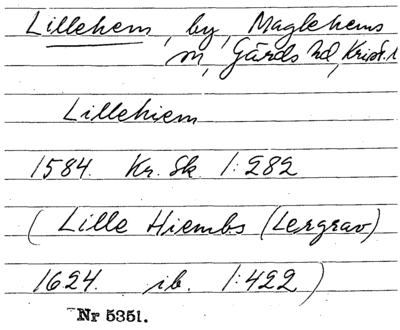 Lillehem, by, Maglehems
sn, Gärds hd, Krist. l
Lillehiem
1584. Kr. Sk. 1:282
(Lille Hiembs (Lergrav)
1624. ib. 1:422)
Nr 5351.